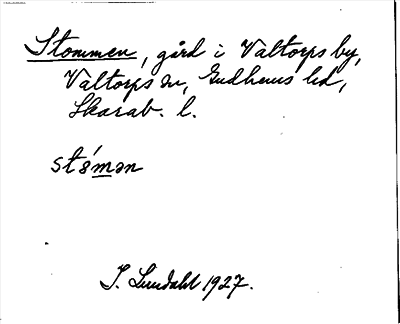 Stommen, gård i Valtorps by,
Valtorps sn, Gudhems hd,
Skarab. l.
stómən
I. Lundahl 1927.